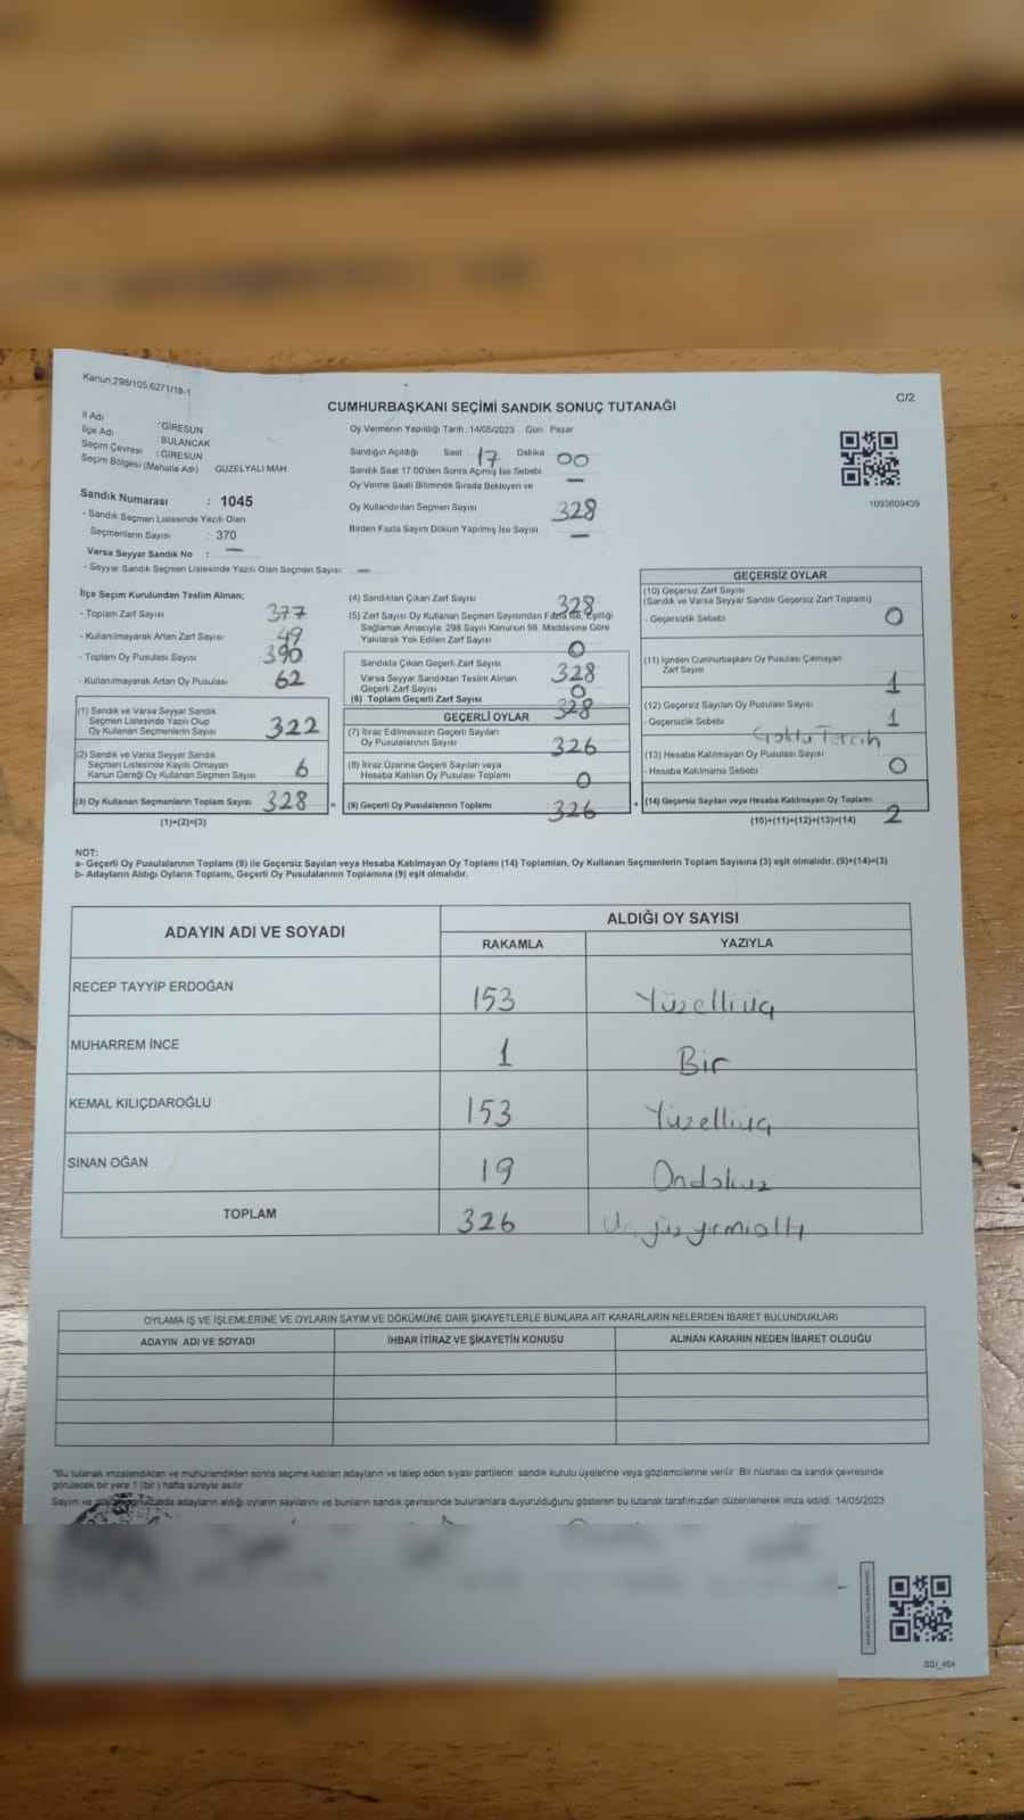 Kanun 298/105,6271/18-1
C/2
CUMHURBAŞKANI SEÇİMİ SANDIK SONUÇ TUTANAĞI
İl Adı : GİRESUN
İlçe Adı : BULANCAK
Seçim Çevresi : GİRESUN
Seçim Bölgesi (Mahalle Adı) GÜZELYALI MAH
Sandık Numarası : 1045
- Sandık Seçmen Listesinde Yazılı Olan
Seçmenlerin Sayısı : 370
Varsa Seyyar Sandık No : —
- Seyyar Sandık Seçmen Listesinde Yazılı Olan Seçmen Sayısı: —
Oy Vermenin Yapıldığı Tarih :14/05/2023 Gün Pazar
Sandığın Açıldığı Saat 17 Dakika 00
Sandık Saat 17.00'den Sonra Açmış İse Sebebi —
Oy Verme Saati Bitiminde Sırada Bekleyen ve
Oy Kullandırılan Seçmen Sayısı 328
Birden Fazla Sayım Döküm Yapılmış İse Sayısı —
1093609439
İlçe Seçim Kurulundan Teslim Alınan;
- Toplam Zarf Sayısı 377
- Kullanılmayarak Artan Zarf Sayısı 49
- Toplam Oy Pusulası Sayısı 390
- Kullanılmayarak Artan Oy Pusulası 62
(1) Sandık ve Varsa Seyyar Sandık
Seçmen Listesinde Yazılı Olup
Oy Kullanan Seçmenlerin Sayısı 322
(2) Sandık ve Varsa Seyyar Sandık
Seçmen Listesinde Kayıtlı Olmayan
Kanun Gereği Oy Kullanan Seçmen Sayısı 6
(3) Oy Kullanan Seçmenlerin Toplam Sayısı 328
(1)+(2)=(3)
(4) Sandıktan Çıkan Zarf Sayısı 328
(5) Zarf Sayısı Oy Kullanan Seçmen Sayısından Fazla İse, Eşitliği
Sağlamak Amacıyla; 298 Sayılı Kanunun 98. Maddesine Göre
Yakılarak Yok Edilen Zarf Sayısı 0
Sandıkta Çıkan Geçerli Zarf Sayısı 328
Varsa Seyyar Sandıktan Teslim Alınan
Geçerli Zarf Sayısı 0
(6) Toplam Geçerli Zarf Sayısı 328
GEÇERLİ OYLAR
(7) İtiraz Edilmeksizin Geçerli Sayılan
Oy Pusulalarının Sayısı 326
(8) İtiraz Üzerine Geçerli Sayılan veya
Hesaba Katılan Oy Pusulası Toplamı 0
(9) Geçerli Oy Pusulalarının Toplamı 326
GEÇERSİZ OYLAR
(10) Geçersiz Zarf Sayısı
(Sandık ve Varsa Seyyar Sandık Geçersiz Zarf Toplamı)
- Geçersizlik Sebebi 0
(11) İçinden Cumhurbaşkanı Oy Pusulası Çıkmayan
Zarf Sayısı 1
(12) Geçersiz Sayılan Oy Pusulası Sayısı 1
- Geçersizlik Sebebi Çoklu Tercih
(13) Hesaba Katılmayan Oy Pusulası Sayısı 0
- Hesaba Katılmama Sebebi
(14) Geçersiz Sayılan veya Hesaba Katılmayan Oy Toplamı 2
(10)+(11)+(12)+(13)=(14)
NOT:
a- Geçerli Oy Pusulalarının Toplamı (9) ile Geçersiz Sayılan veya Hesaba Katılmayan Oy Toplamı (14) Toplamları, Oy Kullanan Seçmenlerin Toplam Sayısına (3) eşit olmalıdır. (9)+(14)=(3)
b- Adayların Aldığı Oyların Toplamı, Geçerli Oy Pusulalarının Toplamına (9) eşit olmalıdır.
ADAYIN ADI VE SOYADI
ALDIĞI OY SAYISI
RAKAMLA YAZIYLA
RECEP TAYYİP ERDOĞAN 153 Yüzelliüç
MUHARREM İNCE 1 Bir
KEMAL KILIÇDAROĞLU 153 Yüzelliüç
SİNAN OĞAN 19 Ondokuz
TOPLAM 326 Üçyüzyirmialtı
OYLAMA İŞ VE İŞLEMLERİNE VE OYLARIN SAYIM VE DÖKÜMÜNE DAİR ŞİKAYETLERLE BUNLARA AİT KARARLARIN NELERDEN İBARET BULUNDUKLARI
ADAYIN ADI VE SOYADI İHBAR İTİRAZ VE ŞİKAYETİN KONUSU ALINAN KARARIN NEDEN İBARET OLDUĞU
"Bu tutanak imzalandıktan ve mühürlendikten sonra seçime katılan adayların ve talep eden siyasi partilerin sandık kurulu üyelerine veya gözlemcilerine verilir. Bir nüshası da sandık çevresinde
görülecek bir yere 1 (bir) hafta süreyle asılır
Sayım ve adayların aldığı oyların sayılarını ve bunların sandık çevresinde bulunanlara duyurulduğunu gösteren bu tutanak tarafımızdan düzenlenerek imza edildi. 14/05/2023